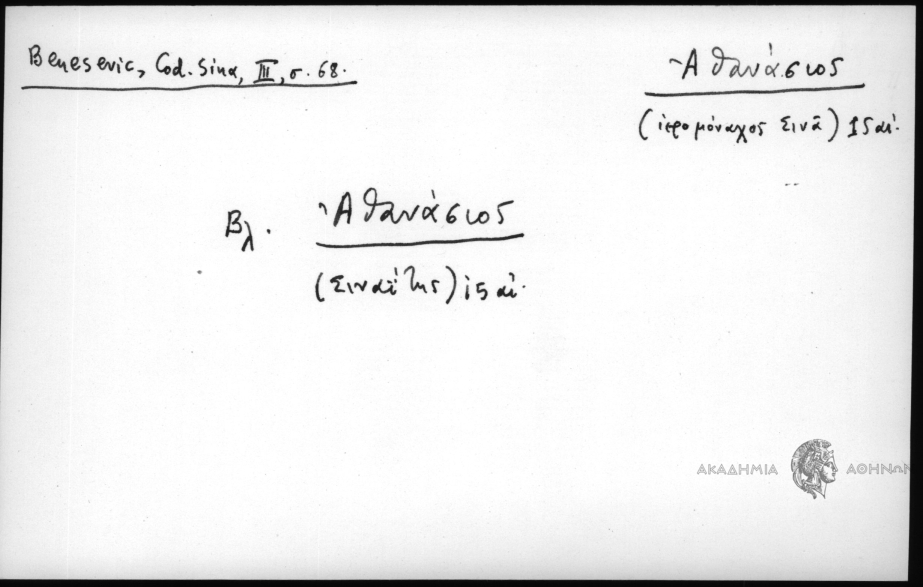 Benesevic, Cod. Sina, III, σ. 68.
Ἀθανάσιος
(ἱερομόναχος Σινᾶ) 15 αἰ.
Βλ. Ἀθανάσιος
(Σιναΐτης) 15 αἰ.
ΑΚΑΔΗΜΙΑ ΑΘΗΝΩΝ